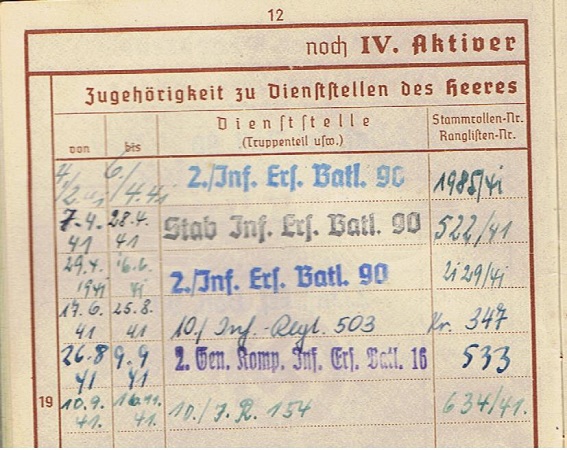 12
noch IV. Aktiver
Zugehörigkeit zu Dienststellen des Heeres
von bis Dienststelle (Truppenteil usw.) Stammrollen-Nr. Ranglisten-Nr.
4./2.41 6./4.41 2./Inf. Ers. Batl. 90 1985/41
7.4. 41 28.4. 41 Stab Inf. Ers. Batl. 90 522/41
29.4. 1941 16.6. 41 2./Inf. Ers. Batl. 90 2129/41
17.6. 41 25.8. 41 10./Inf.-Regt. 503 Kr. 347
26.8 41 9.9 41 2. Gen. Komp. Inf. Ers. Batl. 16 533
19 10.9. 41. 16.11. 41. 10./I.R. 154 634/41.